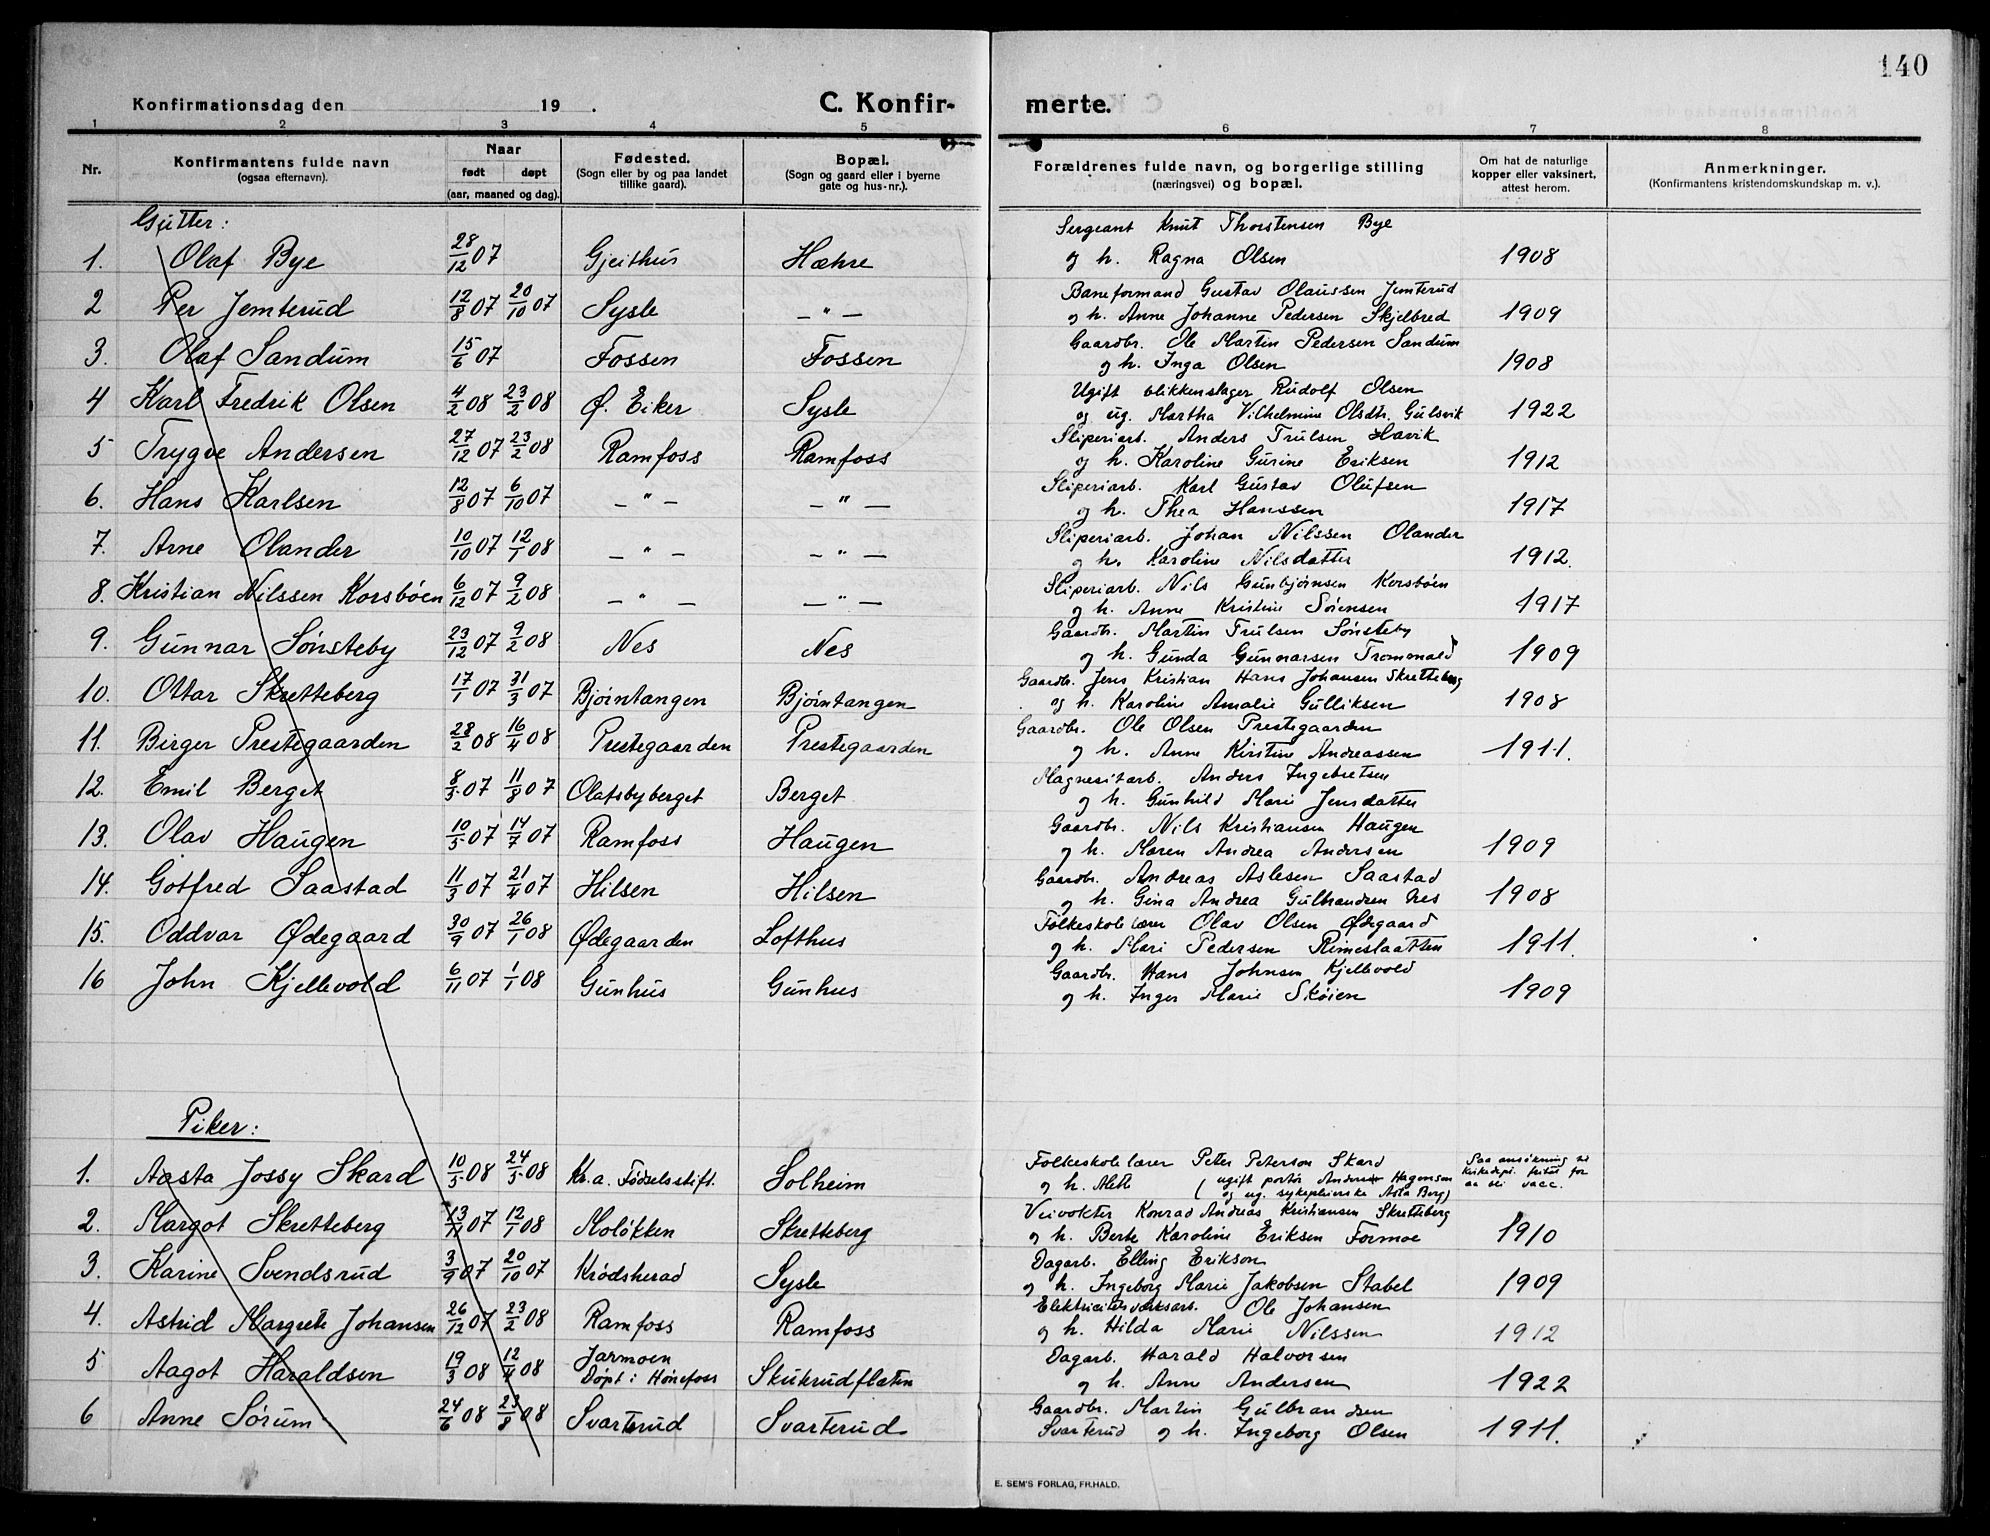 140
Konfirmationsdag den 19 . C. Konfir- merte.
1 2 3 4 5 6 7 8
Nr. Konfirmantens fulde navn (ogsaa efternavn). Naar født døpt (aar, maaned og dag). Fødested. (Sogn eller by og paa landet tillike gaard). Bopæl. (Sogn og gaard eller i byerne gate og hus-nr.). Forældrenes fulde navn, og borgerlige stilling (næringsvei) og bopæl. Om hat de naturlige kopper eller vaksinert, attest herom. Anmerkninger. (Konfirmantens kristendomskundskap m. v.).
Gutter:
Sergeant Knut Thorstensen Bye
1. Olaf Bye 28/12 07 Gjeithus Hæhre og h. Ragna Olsen 1908
Baneformand Gustav Olaussen Jemterud
2 Per Jemterud 12/8 07 20/10 07 Sysle — " — og h. Anne Johanne Pedersen Skjelbred 1909
Gaardbr. Ole Martin Pedersen Sandum
3. Olaf Sandum 15/6 07 Fossen Fossen og h. Inga Olsen 1908
Ugift blikkenslager Rudolf Olsen
4 Karl Fredrik Olsen 4/2 08 23/2 08 Ø. Eiker Sysle og ug. Martha Vilhelmine Olsdtr. Gulsvik 1922
Sliperiarb. Anders Trulsen Havik
5 Trygve Andersen 27/12 07 23/2 08 Ramfoss Ramfoss og h. Karoline Gurine Eriksen 1912
Sliperiarb. Karl Gustav Olufsen
6. Hans Karlsen 12/8 07 6/10 07 — " — — " — og h. Thea Hanssen 1917
Sliperiarb. Johan Nilssen Olander
7. Arne Olander 10/10 07 12/1 08 — " — — " — og h. Karoline Nilsdatter 1912.
Sliperiarb. Nils Gunbjørnsen Korsbøen
8. Kristian Nilssen Korsbøen 6/12 07 9/2 08 — " — — " — og h. Anne Kristine Sørensen 1917
Gaardbr. Martin Trulsen Sønsteby
9. Gunnar Sønsteby 23/12 07 9/2 08 Nes Nes og h. Gunda Gunnarsen Trommald 1909
Gaardbr. Jens Kristian Hans Johansen Skretteberg
10. Ottar Skretteberg 17/1 07 31/3 07 Bjørntangen Bjørntangen og h. Karoline Amalie Gulliksen 1908
Gaardbr. Ole Olsen Prestegaarden
11. Birger Prestegaarden 28/2 08 16/4 08 Prestegaarden Prestegaarden og h. Anne Kirstine Andreassen 1911.
Magnesitarb. Anders Ingebretsen
12. Emil Berget 8/5 07 11/8 07 Olafsbyberget Berget og h. Gunhild Marie Jensdatter
Gaardbr. Nils Kristiansen Haugen
13. Olav Haugen 10/5 07 14/7 07 Ramfoss Haugen og h. Maren Andrea Andersen 1909
Gaardbr. Andreas Aslesen Saastad
14. Gotfred Saastad 11/3 07 21/4 07 Hilsen Hilsen og h. Gina Andrea Gulbrandsen Nes 1908
Folkeskolelærer Olav Olsen Ødegaard
15. Oddvar Ødegaard 30/9 07 26/1 08 Ødegaarden Lofthus og h. Mari Pedersen Rimeslaatten 1911.
Gaardbr. Hans Johnsen Kjellevold
16 John Kjellevold 6/11 07 1/1 08 Gunhus Gunhus og h. Inger Marie Skøien 1909
Piker:
Folkeskolelærer Peter Peterson Skard Saa ansøkning til
1. Aasta Jossy Skard 10/5 08 24/5 08 Kr.a. Fødselsstift. Solheim og h. Aleth ( ugift portør Anders Hagensen Kirkedept. fritat for
og ug. sykepleierske Asta Berg) aa bli vacc.
Veivokter Konrad Andreas Kristiansen Skretteberg
2. Margot Skretteberg 13/11 07 12/1 08 Moløkken Skretteberg og h. Berte Karoline Eriksen Formoe 1910
Dagarb. Elling Erikson
3. Karine Svendsrud 3/9 07 20/10 07 Krødsherad Sysle og h. Ingeborg Marie Jakobsen Stabel 1909
Elektricitetsverksarb. Ole Johansen
4. Astrid Margrete Johansen 26/12 07 23/2 08 Ramfoss Ramfoss og h. Hilda Marie Nilssen 1912
Jarmoen Dagarb. Harald Halvorsen
5 Aagot Haraldsen 19/3 08 12/4 08 Døpt i Hønefoss Skukrudflaten og h. Anne Andersen 1922
Gaardbr. Martin Gulbrandsen
6 Anne Sørum 24/6 08 23/8 08 Svarterud Svarterud Svarterud og h. Ingeborg Olsen 1911.
E. SEM'S FORLAG, FR.HALD.